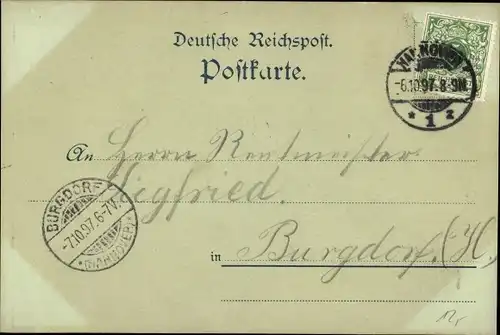 Deutsche Reichspost.
Postkarte.
HANNOVER
-6.10.97.8-9N.
* 1 z
An Herrn Rentmeister
Siegfried.
in Burgdorf. (H.
BURGDORF
-7.10.97.6-7V.
*(HANNOVER)*